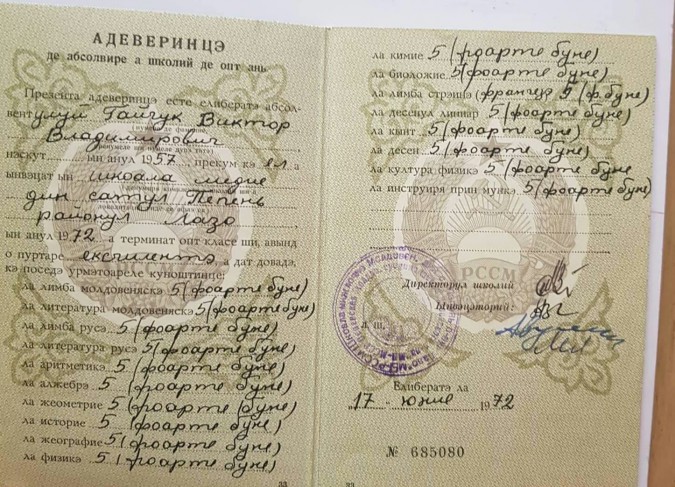 АДЕВЕРИНЦЭ
де абсолвире а школий де опт ань
Презента адеверинцэ есте елибератэ абсол-
вентулуй Гайчук Виктор
Владимирович
нэскут ын анул 1957, прекум кэ ел а
ынвэцат ын шкоала медие
дин сатул Пепень
районул Лазо
ши ын анул 1972 а терминат опт класе ши, авынд
о пуртаре ексчилентэ, а дат довадэ,
кэ поседэ урмэтоареле куноштинце:
ла лимба молдовеняскэ 5 (фоарте буне)
ла литература молдовеняскэ 5 (фоарте буне)
ла лимба русэ 5 (фоарте буне)
ла литература русэ 5 (фоарте буне)
ла аритметикэ 5 (фоарте буне)
ла алжебрэ 5 (фоарте буне)
ла жеометрие 5 (фоарте буне)
ла историе 5 (фоарте буне)
ла жеографие 5 (фоарте буне)
ла физикэ 5 (фоарте буне)
33
ла кимие 5 (фоарте буне)
ла биоложие 5 (фоарте буне)
ла лимба стрэинэ (французэ 5 (ф. буне)
ла десенул линиар 5 (фоарте буне)
ла кынт 5 (фоарте буне)
ла десен 5 (фоарте буне)
ла култура физикэ 5 (фоарте буне
ла инструиря прин мункэ 5 (фоарте буне)
РССМ
Директорул школий
Ынвэцэторий:
Елибератэ ла
„17 юние 1972
№ 685080
33